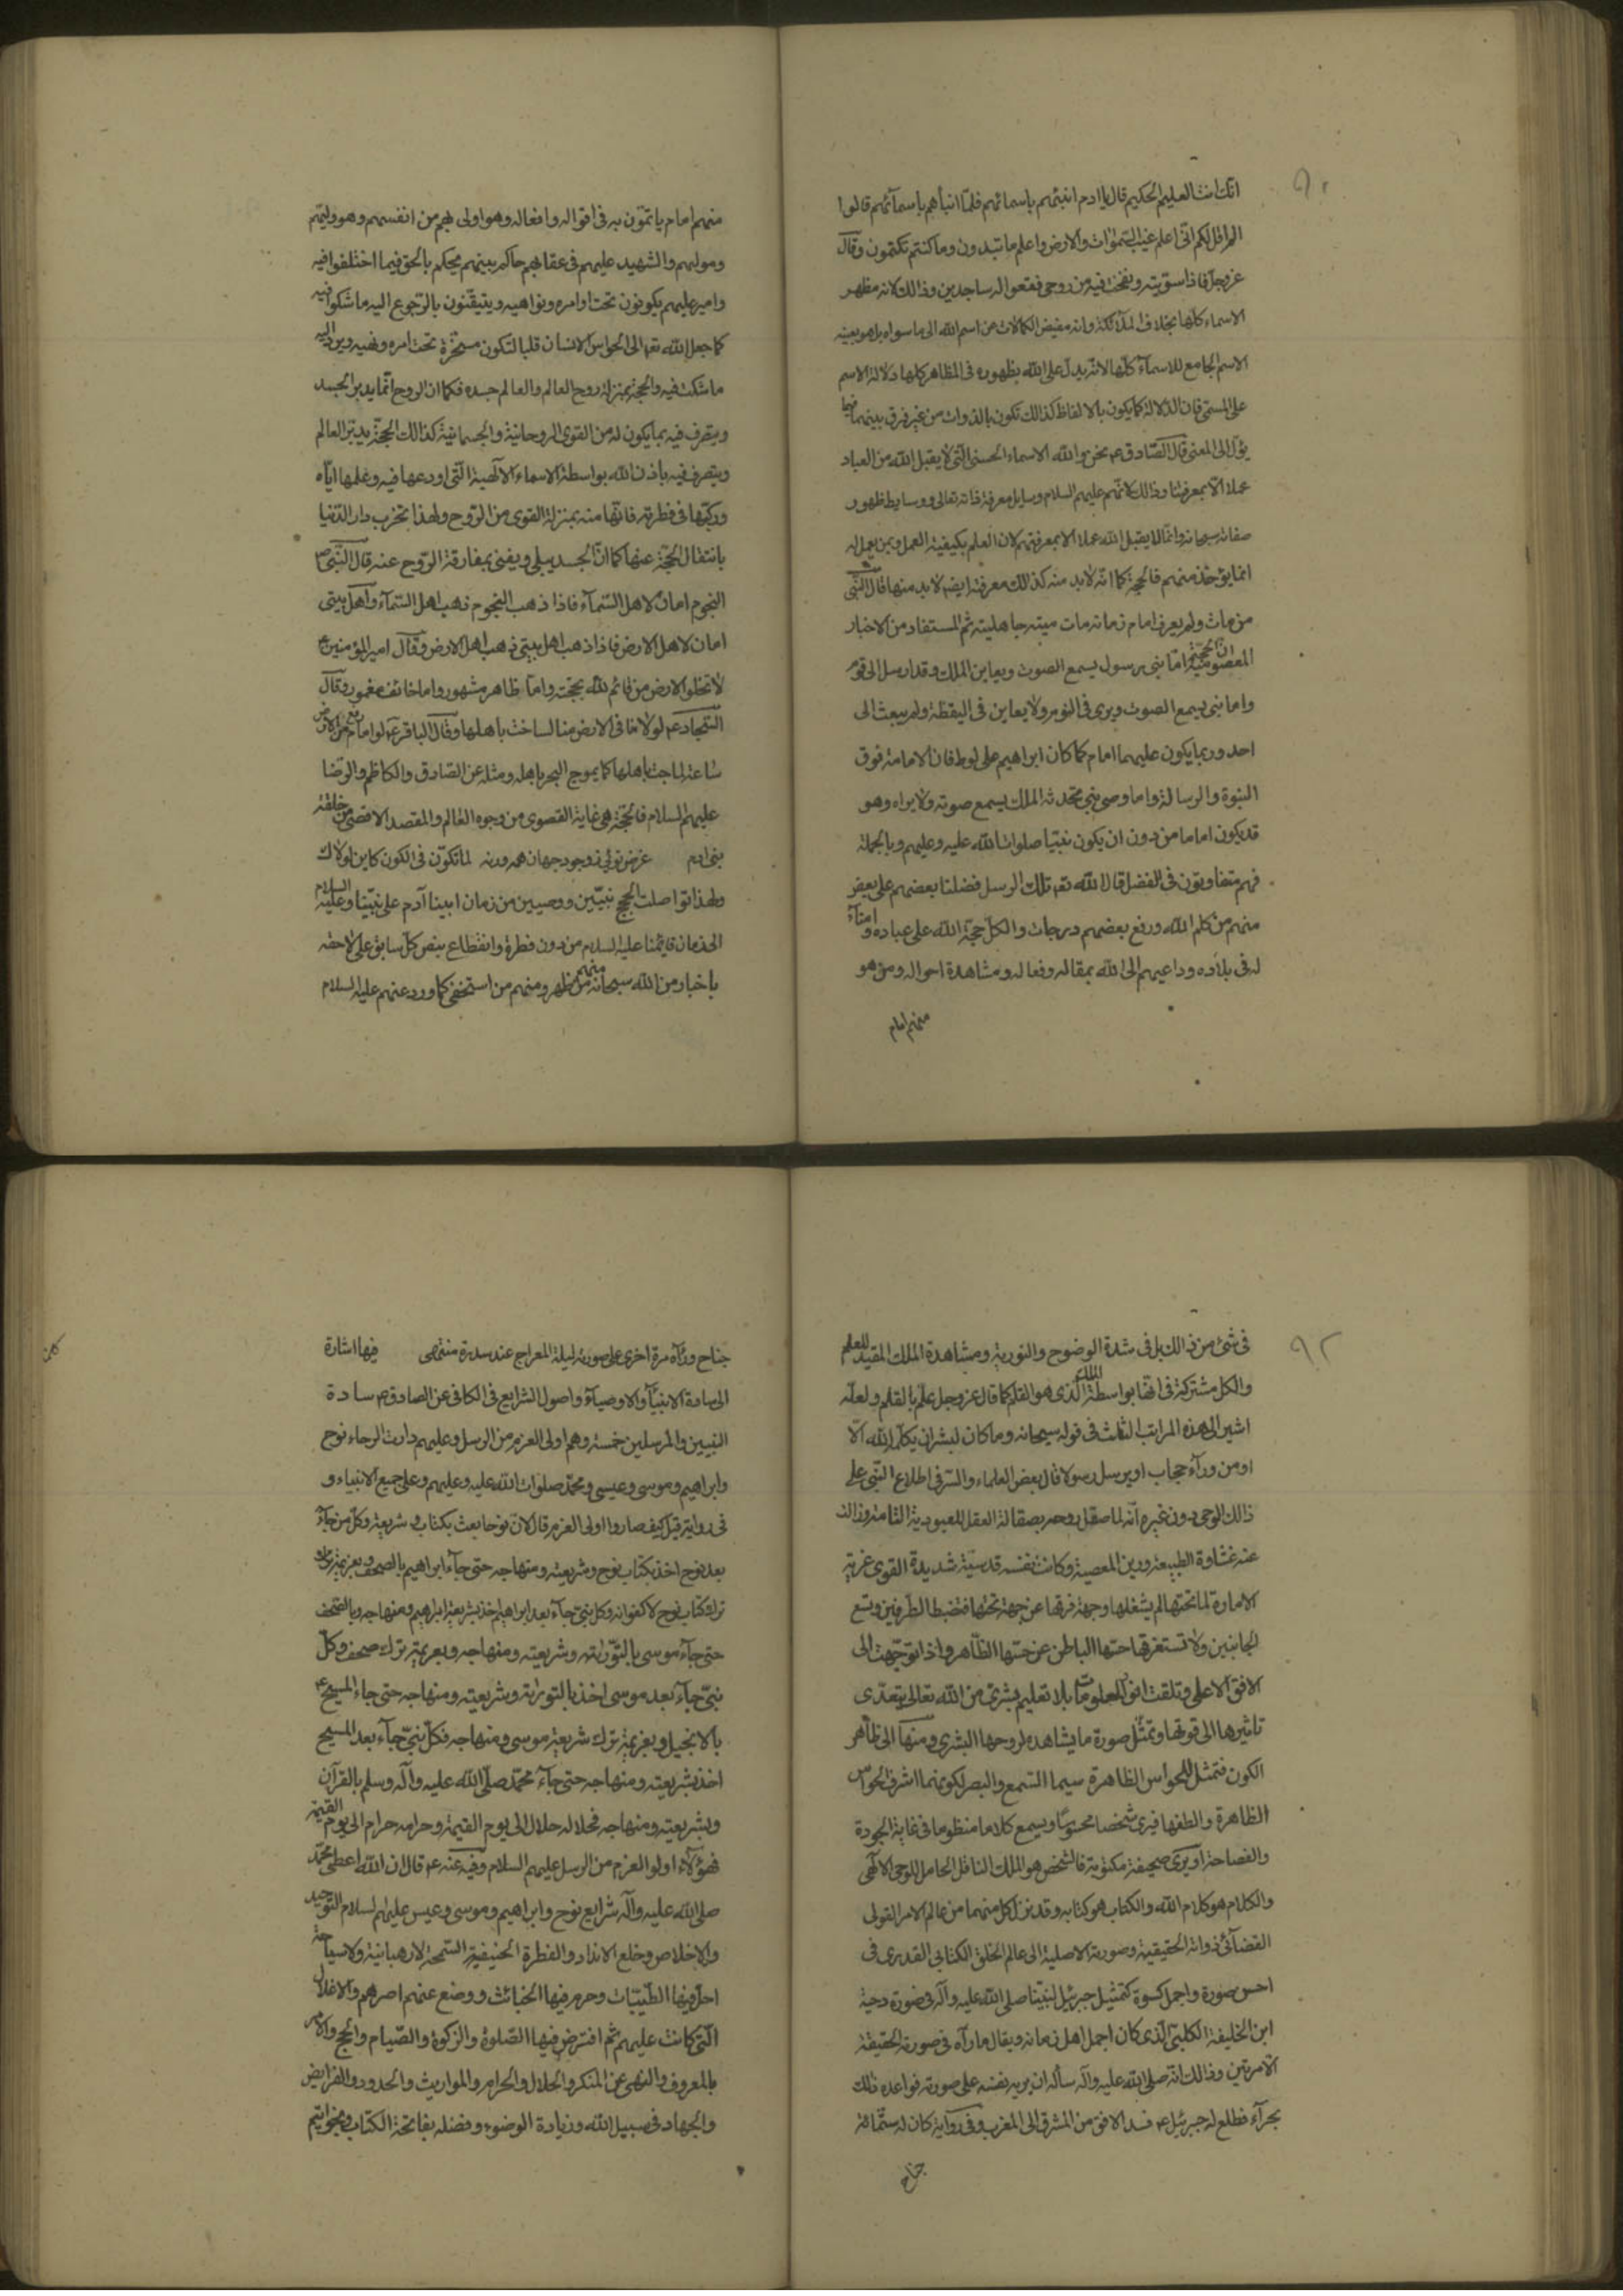 ٩٠
انّك انت العليم الحكيم قال يا ادم انبئهم باسمائهم فلمّا انبأهم باسمآئهم قالوا
الم اقل لكم انّى اعلم غيب السّموات والارض واعلم ما تبدون وما كنتم تكتمون وقال
عزوجل فاذا سوّيته ونفخت فيه من روحى فقعوا له ساجدين وذالك لانه مظهر
الاسماء كلّها بخلاف الملآئكة وانه مفيض الكمالات من اسم الله الى ما سواه بل هو بعينه
الاسم الجامع للاسمآء كلّها لانّه يدلّ على الله بظهوره فى المظاهر كلها دلالة الاسم
على المسمّى فان الدّلالة كما يكون بالالفاظ كذالك تكون بالذوات من غير فرق بينهما فيما
يؤل الى المعنى قال الصّادق ع نحن والله الاسماء الحسنى الّتى لا يقبل الله من العباد
عملا الّا بمعرفتنا وذالك لانّهم عليهم السلام وسايل معرفة ذاته تعالى ووسايط ظهور
صفاته سبحانه وانّما لا يقبل الله عملا الا بمعرفتهم لان العلم بكيفية العمل وبمن يعمل له
انما يؤخذ منهم فالحجة كما انّه لابد منه كذلك معرفته ايضا لابد منها قال النّبى ص
من مات ولم يعرف امام زمانه مات ميتة جاهلية ثم المستفاد من الاخبار
المعصومية ان الحجة امّا نبى رسول يسمع الصوت ويعاين الملك وقد ارسل الى قوم
واما نبى يسمع الصوت ويرى فى النوم ولا يعاين فى اليقظة ولم يبعث الى
احد وربما يكون عليهما امام كما كان ابراهيم على لوط فان الامامة فوق
النبوة والرسالة واما وصى نبى محدّثه الملك يسمع صوته ولا يراه وهو
قد يكون اماما من دون ان يكون نبيّا صلوات الله عليه وعليهم وبالجملة
فهم متفاوتون فى الفضل قال الله تعه تلك الرسل فضلنا بعضهم على بعض
منهم من كلم الله ورفع بعضهم درجات والكل حجة الله على عباده وامنآء
له فى بلاده وداعيهم الى الله بمقاله وفعاله ومشاهدة احواله ومن هو
منهم امام
منهم امام ياتمّون به فى اقواله وافعاله وهو اولى بهم من انفسهم وهو وليّهم
ومولهم والشهيد عليهم فى عقابهم حاكم بينهم يحكم بالحق فيما اختلفوا فيه
وامير عليهم يكونون تحت اوامره ونواهيه ويتيقّنون بالرّجوع اليه ما شكوا فيه
كما جعل الله تعه الى الحواس الانسان قلبا لتكون مسخّرة تحت امره ونهيه ويرد اليه
ما شكّت فيه والحجة بمنزلة روح العالم والعالم جسده فكما ان الروح انّما يدبر الجسد
ويتصرف فيه بما يكون له من القوى الروحانية والجسمانية كذالك الحجّة يدبّر العالم
ويتصرف فيه باذن الله بواسطة الاسماء الالهيّة الّتى اودعها فيه وعلمها ايّاه
وركّبها فى فطرته فانّها منه بمنزلة القوى من الرّوح ولهذا تخرب دار الدّنيا
بانتقال الحجّة عنها كما انّ الجسد يبلى ويفنى بمفارقة الرّوح عنه قال النّبى ص
النجوم امان لاهل السّمآء فاذا ذهب النجوم ذهب اهل السّمآء واهل بيتى
امان لاهل الارض فاذا ذهب اهل بيتى ذهب اهل الارض وقال امير المؤمنين ع
لا تخلو الارض من قائم لله بحجّته وامّا ظاهر مشهور واما خائف مغمور وقال
السّجاد ع لولا ما فى الارض منا لساخت باهلها وقال الباقر ع لو ان الامام رفع من الارض
ساعة لماجت باهلها كما يموج البحر باهله ومثله عن الصّادق والكاظم والرّضا
عليهم السلام فالحجّة هى غاية القصوى من وجود العالم والمقصد الاقصى من خلقة
بنى ادم غرض توئى ز وجود جهان همه ورنه لما تكوّن فى الكون كاين لولاك
ولهذا تواصلت الحجج نبيّين ووصيين من زمان ابينا آدم على نبيّنا وعليه السلام
الى زمان قائمنا عليه السلام من دون فطرة وانقطاع بنص كلّ سابق على لاحقه
باخبار من الله سبحانه منهم من ظهر ومنهم من استخفى كما ورد عنهم عليه السلام
٩٢
فى شئ من ذالك بل فى شدة الوضوح والنورية ومشاهدة الملك المفيد للعلم
والكل مشتركة فى انها بواسطة الملك الّذى هو القلم كما قال عزوجل علّم بالقلم ولعلّه
اشير الى هذه المراتب الثلاث فى قوله سبحانه وما كان لبشر ان يكلّمه الله الّا
او من ورآء حجاب او يرسل رسولا قال بعض العلماء والسّر فى اطلاع النّبى على
ذالك الوحى دون غيره انّه لما صقل روحه بصقالة العقل للعبودية التامة وزالت
عنه غشاوة الطبيعة ورين المعصية وكانت نفسه قدسيّة شديدة القوى غزيرة
الامارة لما تحتها لم يشغلها وجهة فوقها عن جهة تحتها فتضبط الطّرفين وتسع
الجانبين ولا تستغرقها حسّها الباطن عن حسّها الظّاهر واذا توجّهت الى
الافق الاعلى وتلقت انوار المعلومات بلا تعليم بشرىّ من الله تعالى يتعدّى
تاثيرها الى قوتها وتمثّل صورة ما يشاهده لروحها البشرى ومنها الى ظاهر
الكون فتمثل للحواس الظاهرة سيما السّمع والبصر لكونهما اشرف الحواس
الظاهرة والطفها فيرى شخصا محسوسا ويسمع كلاما منظوما فى غاية الجودة
والفصاحة او يرى صحيفة مكتوبة فالشخص هو الملك النازل الحامل للوحى الالهى
والكلام هو كلام الله والكتاب هو كتابه وقد نزل كل منهما من عالم الامر القولى
القضآئى وذاته الحقيقية وصورته الاصلية الى عالم الخلق الكتابى القدرى فى
احسن صورة واجمل كسوة كتمثيل جبرئيل لنبيّنا صلى الله عليه وآله فى صورة دحية
ابن الخليفة الكلبى الّذى كان اجمل اهل زمانه ويقال ما رآه فى صورته الحقيقة
الّا مرتين وذالك انّه صلى الله عليه وآله سأله ان يريه نفسه على صورته فواعده ذلك
بحرآء فطلع له جبرئيل ع فسد الافق من المشرق الى المغرب وفى رواية كان له ستّمائة
جناح
جناح ورآه مرة اخرى على صورته ليلة المعراج عند سدرة منتهى فيها اشارة
الى سادة الانبيآء والاوصيآء واصول الشرايع فى الكافى عن الصادق ع سادة
النبيين والمرسلين خمسة وهم اولى العزم من الرسل وعليهم دارت الرحاء نوح
وابراهيم وموسى وعيسى ومحمّد صلوات الله عليه وعليهم وعلى جميع الانبياء و
فى رواية قيل كيف صاروا اولى العزم قال لانّ نوحا بعث بكتاب وشريعة وكلّ من جآء
بعد نوح اخذ بكتاب نوح وشريعته ومنهاجه حتى جآء ابراهيم بالصحف وبعزيمة
ترك كتاب نوح لا كفرا به وكل نبىّ جآء بعد ابراهيم اخذ بشريعة ابراهيم ومنهاجه وبالصّحف
حتى جآء موسى بالتّورية وشريعته ومنهاجه وبعزيمة ترك صحف وكلّ
نبىّ جآء بعد موسى اخذ بالتورية وشريعته ومنهاجه حتى جاء المسيح ع
بالانجيل وبعزيمة ترك شريعة موسى ومنهاجه فكلّ نبىّ جآء بعد المسيح
اخذ بشريعته ومنهاجه حتى جآء محمّد صلّى الله عليه وآله وسلم بالقرآن
وبشريعته ومنهاجه فحلاله حلال الى يوم القيمة وحرامه حرام الى يوم القيمة
فهؤلاء اولو العزم من الرسل عليهم السلام وفيه عنه ع قال ان الله اعطى محمّد
صلى الله عليه وآله شرايع نوح وابراهيم وموسى وعيسى عليهم السلام التوحيد
والاخلاص وخلع الانداد والفطرة الحنيفية السّمحة لا رهبانية ولا سياحة
احلّ فيها الطّيّبات وحرم فيها الخبائث ووضع عنهم اصرهم والاغلال
الّتى كانت عليهم ثم افترض فيها الصّلوة والزكوة والصّيام والحج والامر
بالمعروف والنهى عن المنكر والحلال والحرام والمواريث والحدود والفرايض
والجهاد فى سبيل الله وزيادة الوضوء وفضله بفاتحة الكتاب وبخواتيم